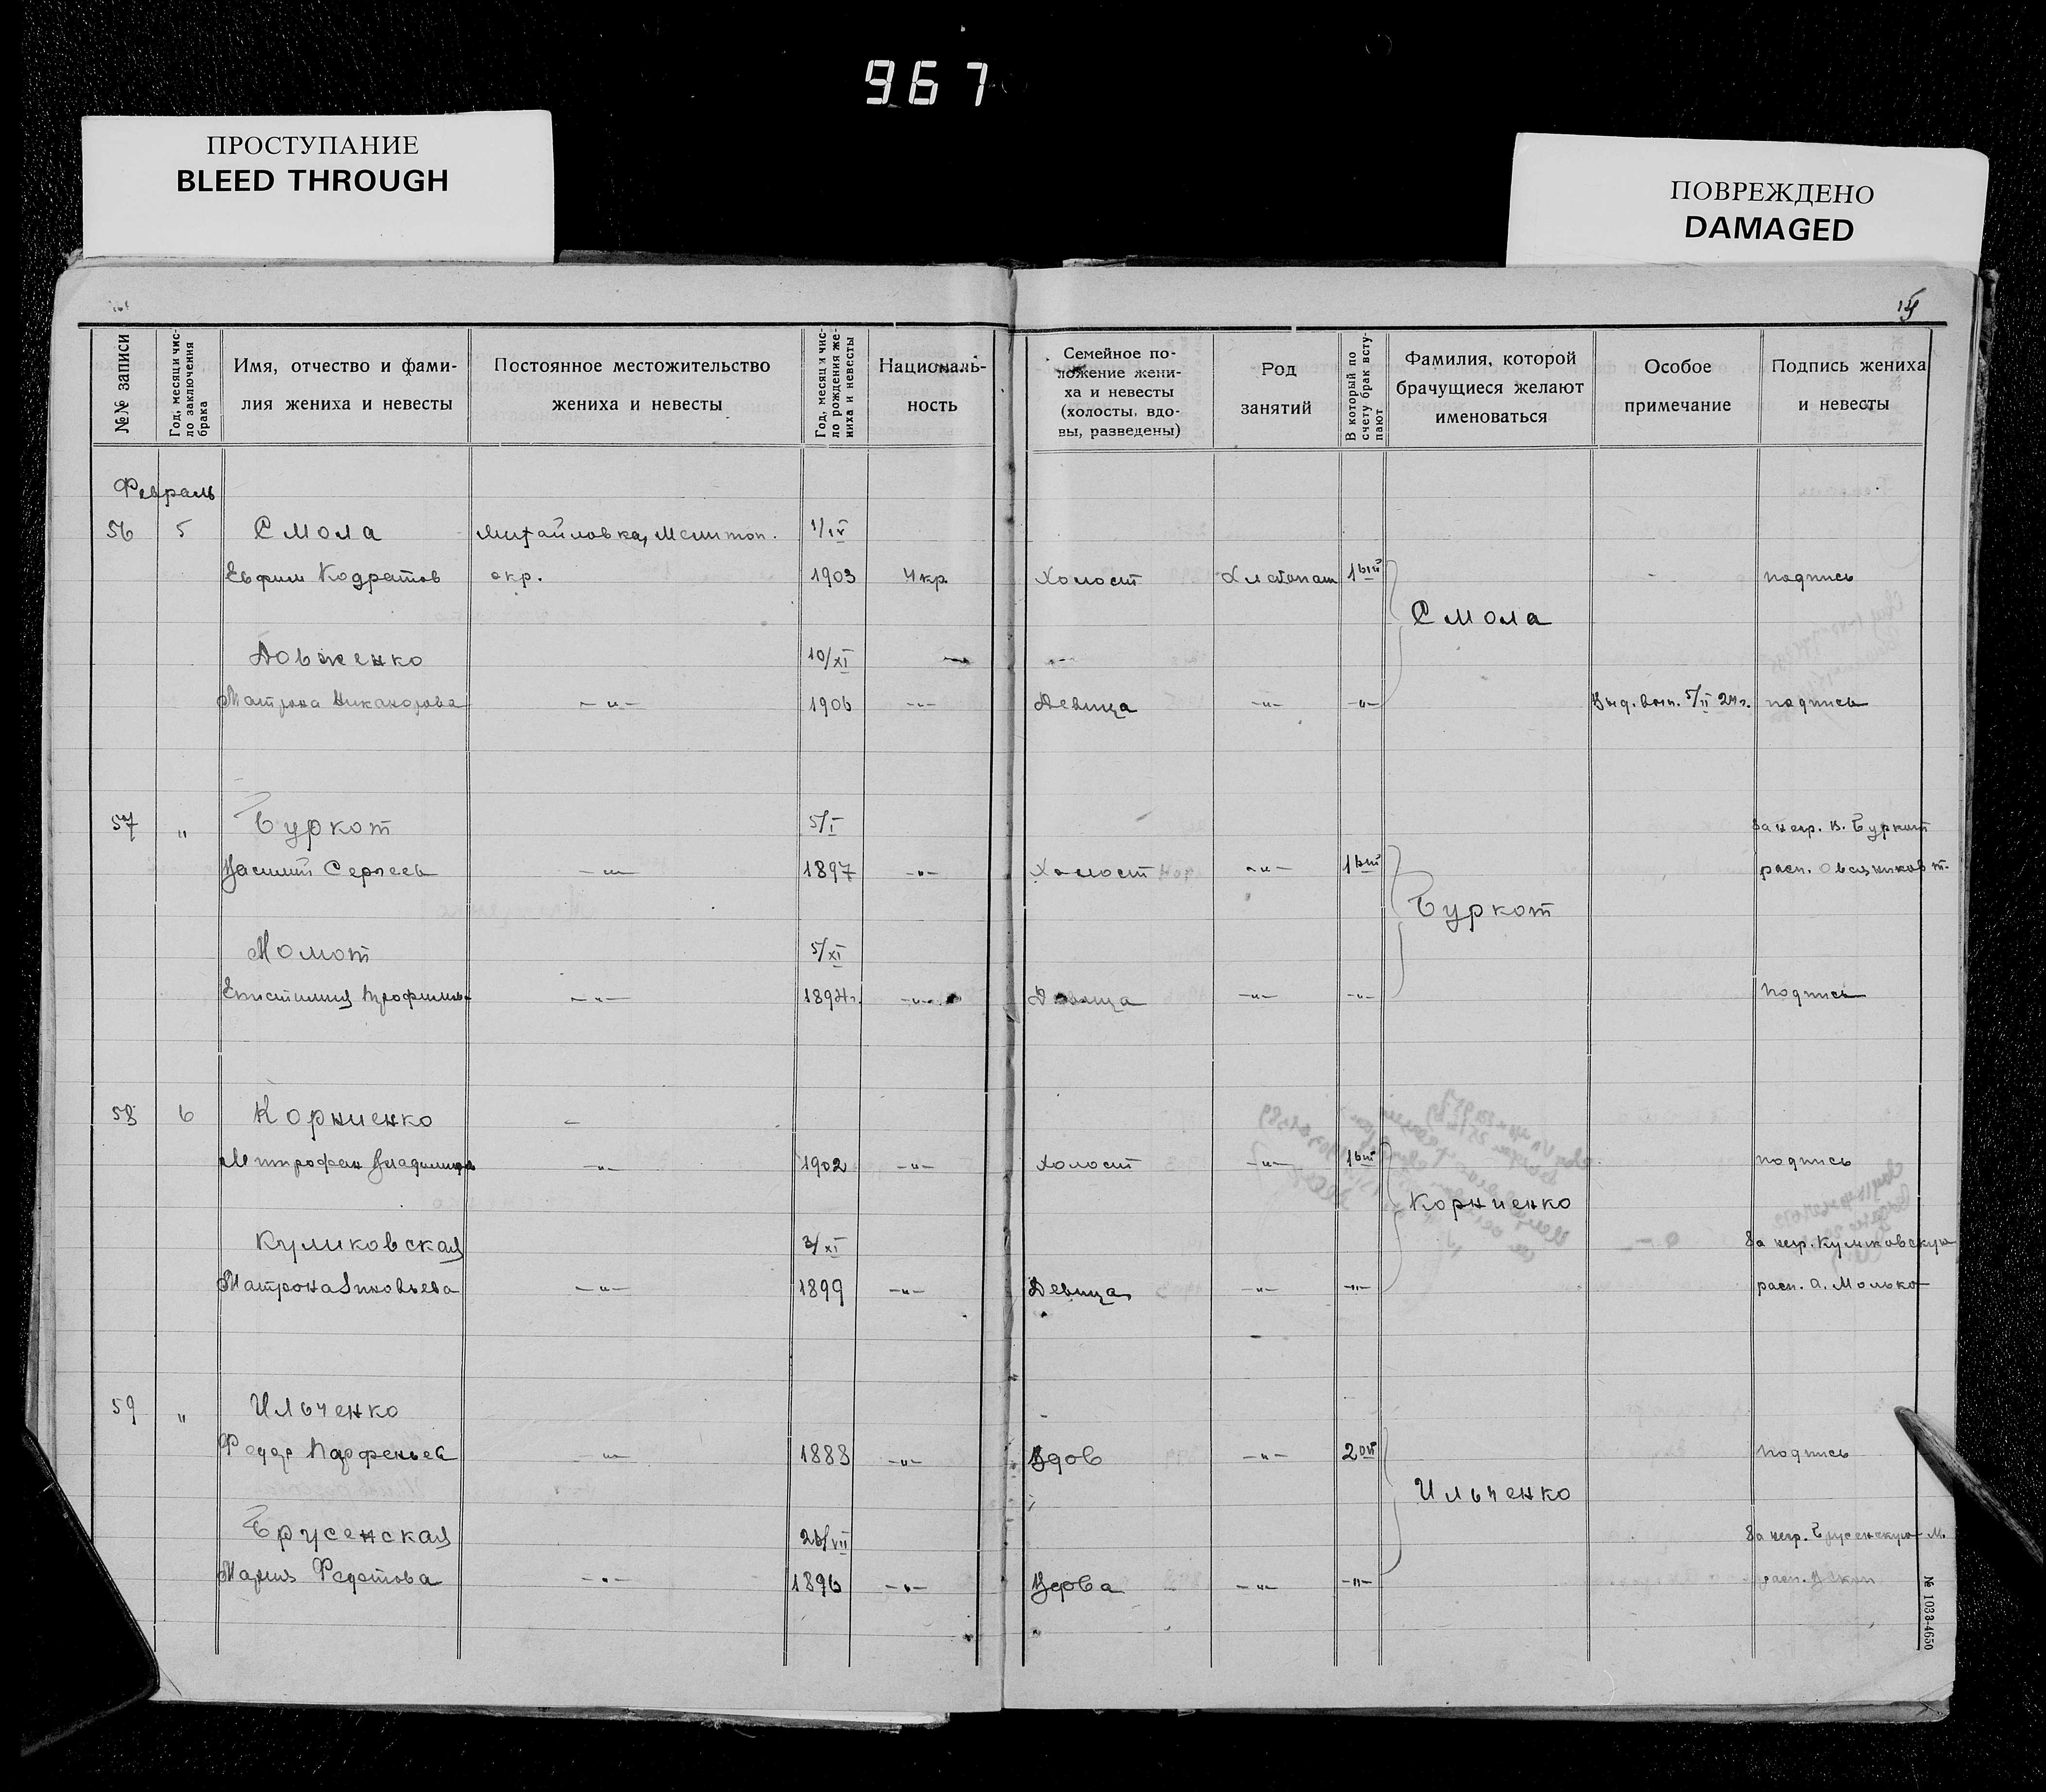 967
ПРОСТУПАНИЕ
BLEED THROUGH
ПОВРЕЖДЕНО
DAMAGED
№№ записи
Год, месяц и чис-
ло заключения
брака
Имя, отчество и фами-
лия жениха и невесты
Постоянное местожительство
жениха и невесты
Год, месяц и чис-
ло рождения же-
ниха и невесты
Националь-
ность
Семейное по-
ложение жени-
ха и невесты
(холосты, вдо-
вы, разведены)
Род
занятий
В который по
счету брак всту-
пают
Фамилия, которой
брачущиеся желают
именоваться
Особое
примечание
Подпись жениха
и невесты
Февраль
56 5 Смола Михайловка, Мелитоп. 1/IV
Евфим Кодратов окр. 1903 Укр. Холост Хлебопаш 1ый подпись
Смола
Довженко 10/XI
Матрона Никанорова -"- 1906 -"- Девица -"- -"- Выд. вып. 5/II 24г. подпись
57 " Буркот 5/I За негр. В. Буркот
Василий Сергеев -"- 1897 -"- Холост -"- 1ый расп. Овсянников
Буркот
Момот 5/XI
-"- 1894г. -"- Девица -"- -"- подпись
58 6 Корниенко
Митрофан -"- 1902 -"- Холост -"- 1ый подпись
Корниенко
Куликовская 3/XI За негр. Куликовскую
Матрона Зиновьева -"- 1899 -"- Девица -"- -"- расп. А. Молько
59 " Ильченко
Федор Парфеньев -"- 1888 -"- Вдов -"- 2ой подпись
Ильченко
Брусенская 26/VII За негр. Брусенскую М.
Мария Федотова -"- 1896 -"- Вдова -"- -"- расп.
№ 1033-4650